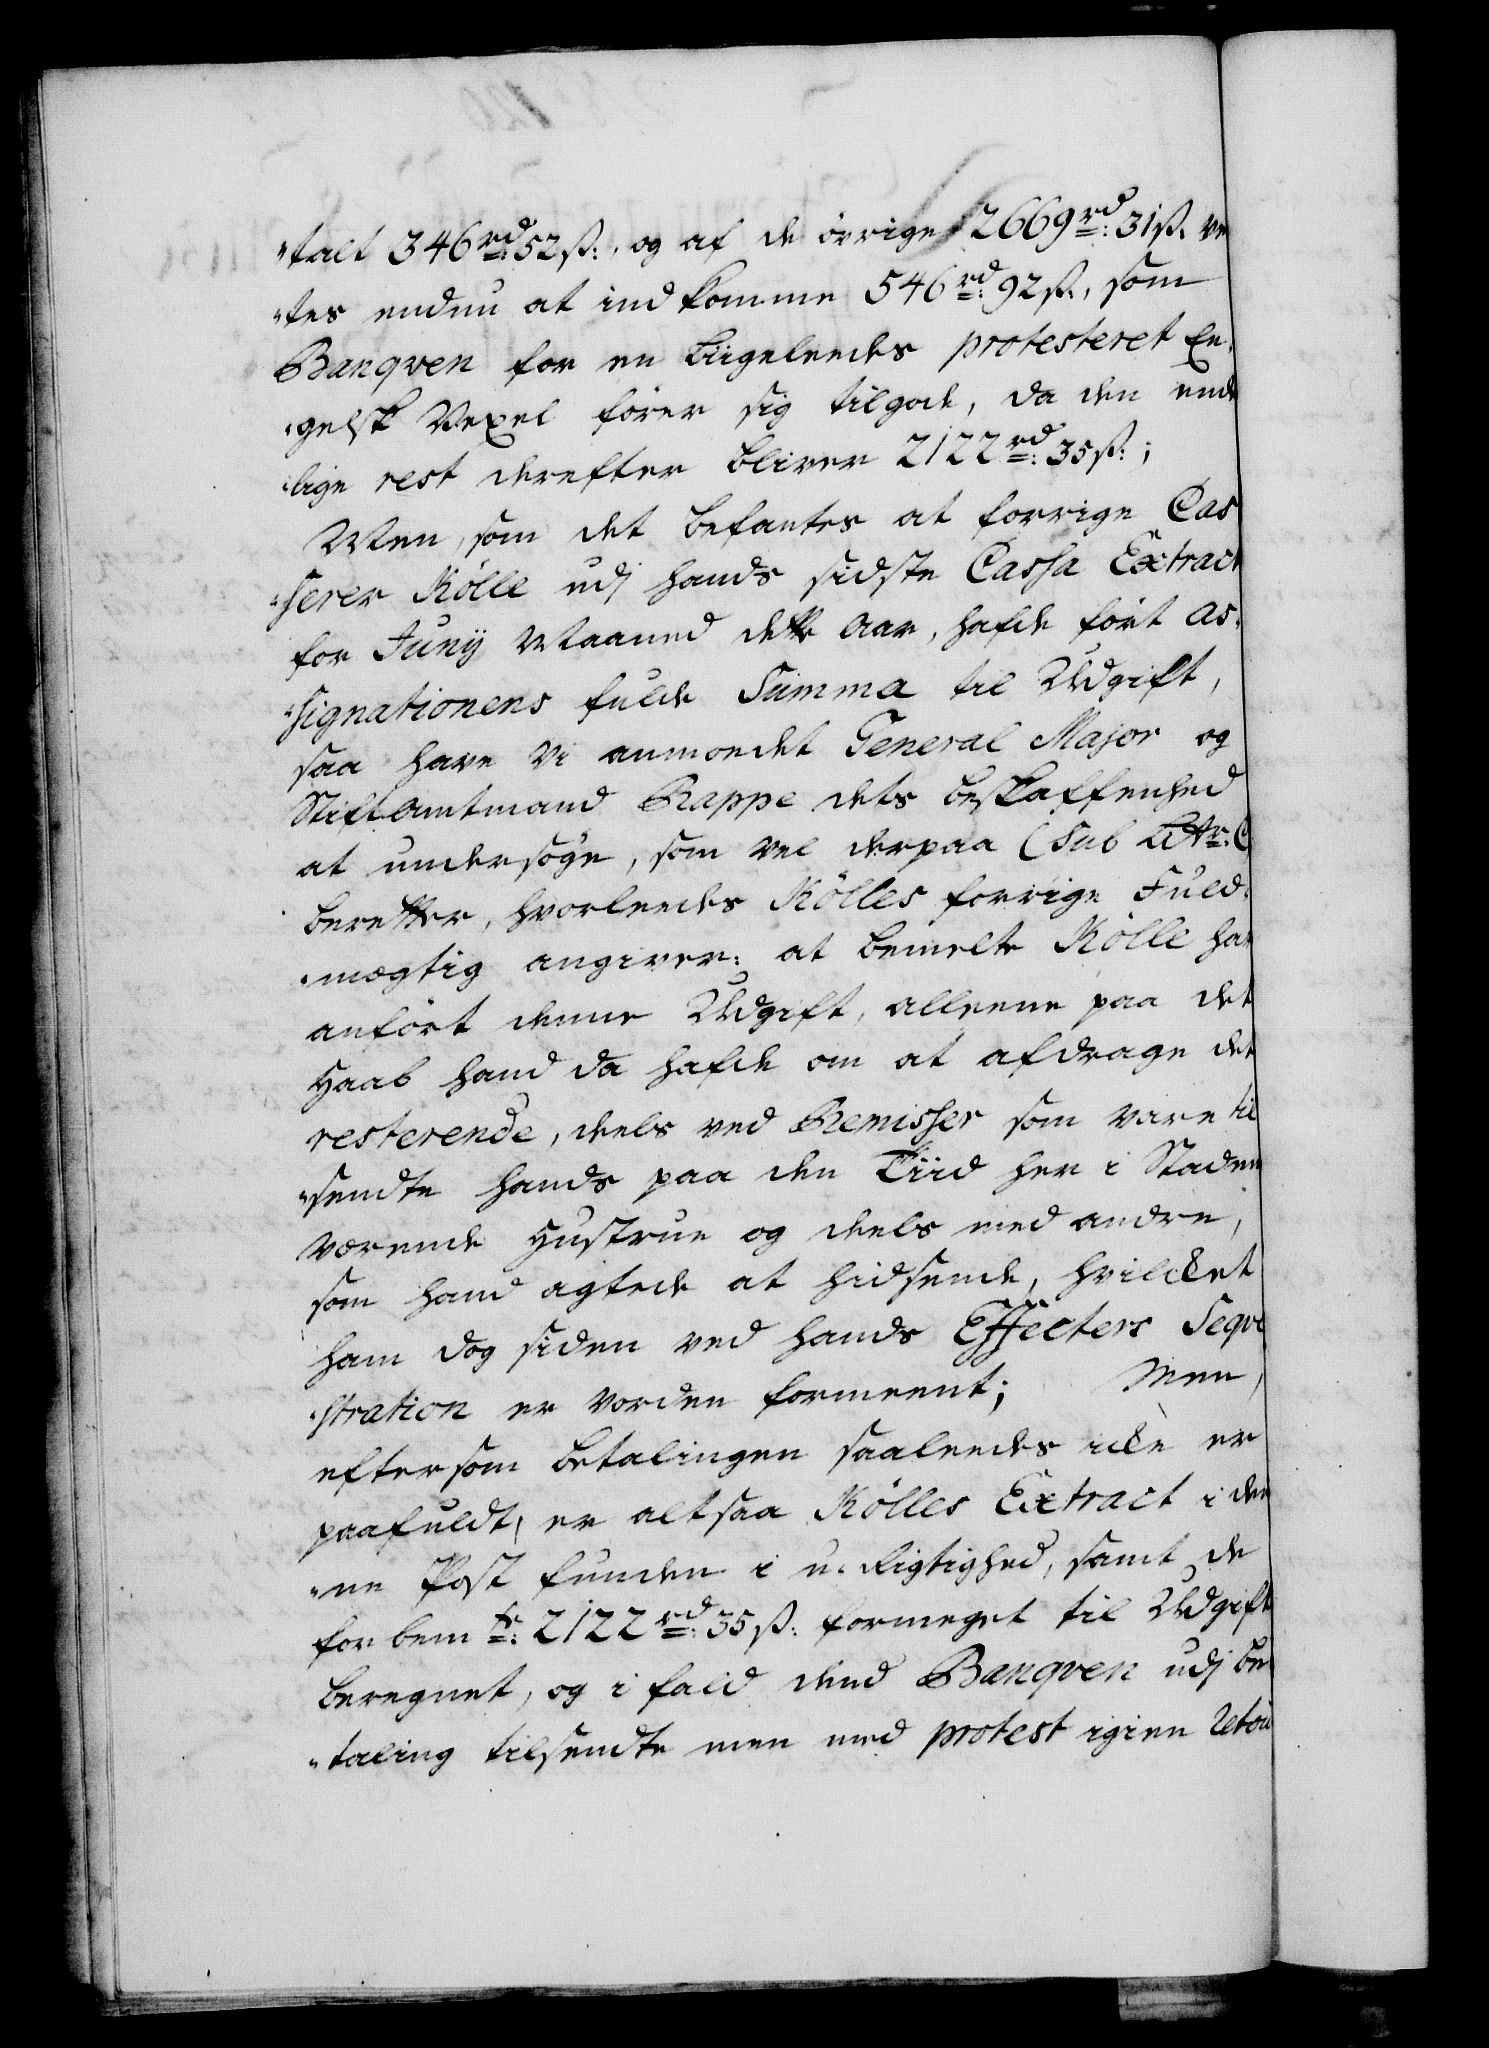 "talt 346 rd: 52 ß:, og af de övrige 2669 rd: 31 ß. ve
"tes endnu at indkomme 546 rd: 92 ß., som
Banqven for en liigeleedes protesteret En,
"gelsk Vexel förer sig tilgode, da den ende
"lige rest derefter bliver 2122 rd: 35 ß:;
Men, som det befantes at forrige Cas
"serer Kölle udj hands sidste Cassa Extract
for Junij Maaned dette Aar, hafde fört As,
"signationens fulde Summa til Udgift,
saa have Vi anmodet General Major og
Stiftamtmand Rappe dets beskaffenhed
at undersöge, som vel derpaa (sub Littr: C
beretter, hvorleedes Kölles forrige Fuld,
"mægtig angiver: at bemelte Kölle har
anfört denne Udgift, alleene paa det
Haab hand da hafde om at afdrage det
resterende, deels ved Remisser som vare til
"sendte hands paa den Tiid her i Staden
værende Hustrue og deels med andre,
som hand agtede at hidsende, hvilcket
ham dog siden ved hands Effecters Seqve
"stration er vorden formeent; Men,
eftersom betalingen saaleedes icke er
paafuldt, er altsaa Kölles Extract i den
"ne Post funden i u-Rigtighed, samt de
forbem te: 2122 rd: 35 ß: formeget til Udgift
beregnet, og i fald dend Banqven udj be
"taling tilsendte men med protest igien retou